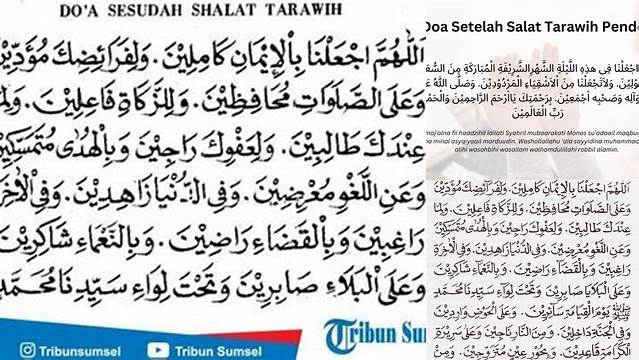 DO'A SESUDAH SHALAT TARAWIH
اَللّٰهُمَّ اجْعَلْنَا بِالْإِيْمَانِ كَامِلِيْنَ. وَلِفَرَائِضِكَ مُؤَدِّيْنَ
وَعَلَى الصَّلَوَاتِ مُحَافِظِيْنَ. وَلِلزَّكَاةِ فَاعِلِيْنَ. وَلِمَا
عِنْدَكَ طَالِبِيْنَ. وَلِعَفْوِكَ رَاجِيْنَ وَبِالْهُدَى مُتَمَسِّكِيْنَ
وَعَنِ اللَّغْوِ مُعْرِضِيْنَ. وَفِى الدُّنْيَا زَاهِدِيْنَ. وَفِى الْاٰخِرَ
رَاغِبِيْنَ وَبِالْقَضَاءِ رَاضِيْنَ. وَبِالنَّعْمَاءِ شَاكِرِيْنَ
وَعَلَى الْبَلَاءِ صَابِرِيْنَ وَتَحْتَ لِوَاءِ سَيِّدِنَا مُحَمَّدٍ
Tribunsumsel
Tribun Sumsel
Tribun Su
Doa Setelah Salat Tarawih Pende
اجْعَلْنَا فِى هٰذِهِ اللَّيْلَةِ الشَّهْرِ الشَّرِيْفَةِ الْمُبَارَكَةِ مِنَ السُّعَ
وَلَاتَجْعَلْنَا مِنَ الْاَشْقِيَاءِ الْمَرْدُوْدِيْنَ. وَصَلَّى اللّٰهُ
وَاٰلِهِ وَصَحْبِهِ اَجْمَعِيْنَ. بِرَحْمَتِكَ يَااَرْحَمَ الرَّاحِمِيْنَ وَالْحَمْ
رَبِّ الْعَالَمِيْنَ
maj'alna fii haadzihil lailati Syahril mubaarakati Monas su'adaail maqbu
na minal asyqiyaail marduudin. Washollallahu 'ala sayyidina muhamma
alihi wasohbihi wasollam walhamdulillahi robbil alamin.
اَللّٰهُمَّ اجْعَلْنَا بِالْإِيْمَانِ كَامِلِيْنَ. وَلِفَرَائِضِكَ مُؤَدِّيْنَ
وَعَلَى الصَّلَوَاتِ مُحَافِظِيْنَ. وَلِلزَّكَاةِ فَاعِلِيْنَ. وَلِمَا
عِنْدَكَ طَالِبِيْنَ. وَلِعَفْوِكَ رَاجِيْنَ وَبِالْهُدَى مُتَمَسِّكِيْنَ
وَعَنِ اللَّغْوِ مُعْرِضِيْنَ. وَفِى الدُّنْيَا زَاهِدِيْنَ. وَفِى الْاٰخِرَةِ
رَاغِبِيْنَ وَبِالْقَضَاءِ رَاضِيْنَ. وَبِالنَّعْمَاءِ شَاكِرِيْنَ
وَعَلَى الْبَلَايَا صَابِرِيْنَ وَتَحْتَ لِوَاءِ سَيِّدِنَا مُحَمَّدٍ
ﷺ يَوْمَ الْقِيَامَةِ سَآئِرِيْنَ. وَعَلَى الْحَوْضِ وَارِدِيْنَ
وَفِى الْجَنَّةِ دَاخِلِيْنَ. وَمِنَ النَّارِ نَاجِيْنَ وَعَلَى سَرِيْرَةِ
الْكَرَامَةِ قَاعِدِيْنَ. وَبِحُوْرٍ عِيْنٍ مُتَزَوِّجِيْنَ. وَمِنْ